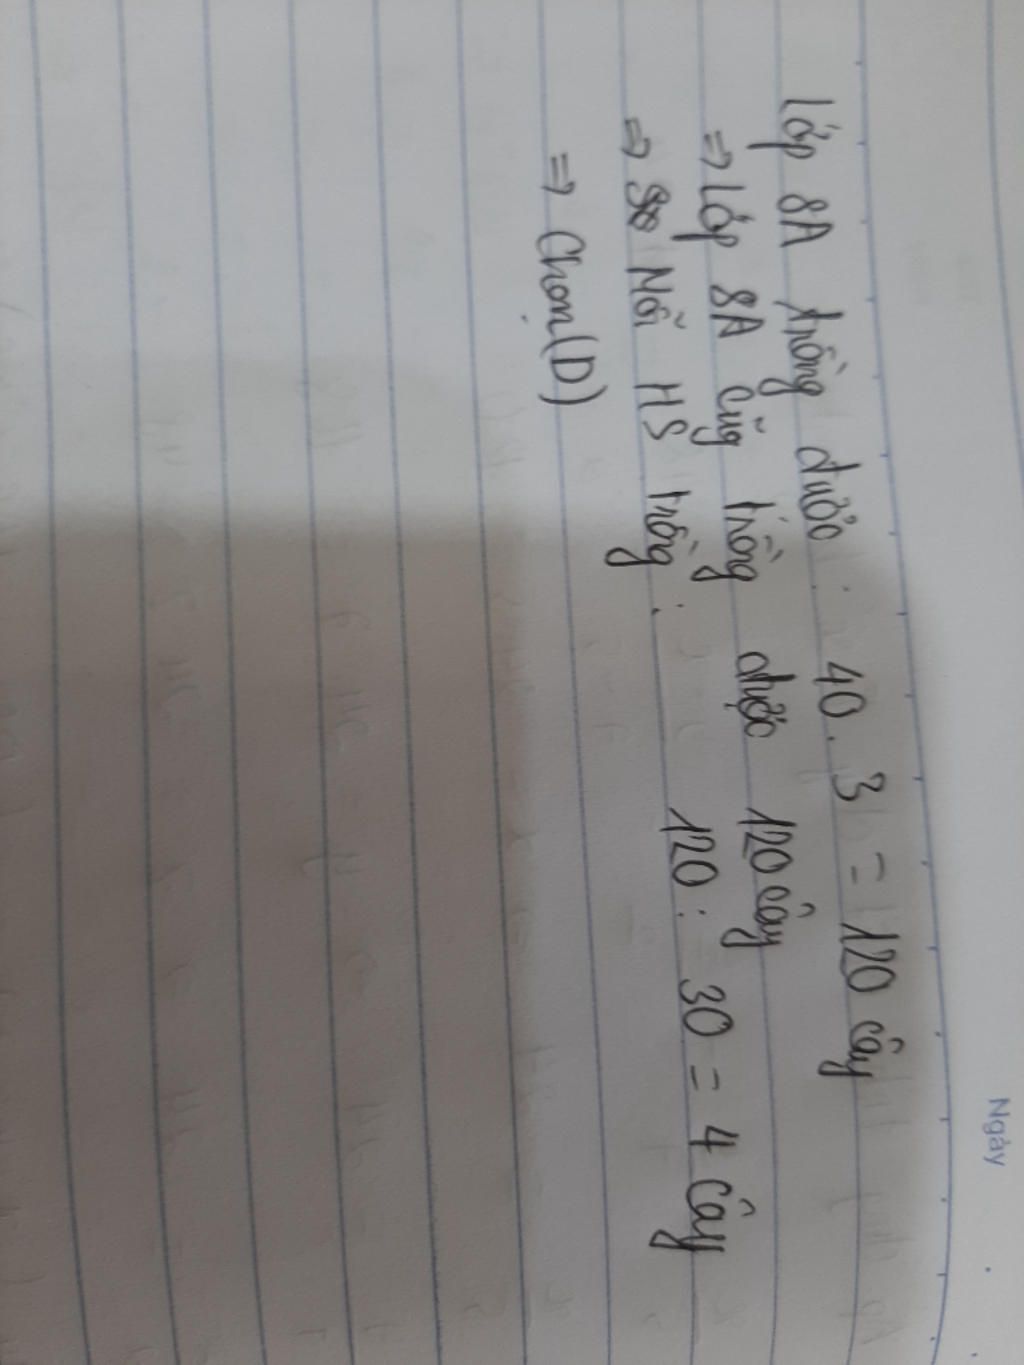 Ngày
Lớp 8A trồng được: 40. 3 = 120 cây
=> Lớp 8A cũg trồng được 120 cây
=> Mỗi HS trồng: 120: 30 = 4 cây
=> Chọn (D)